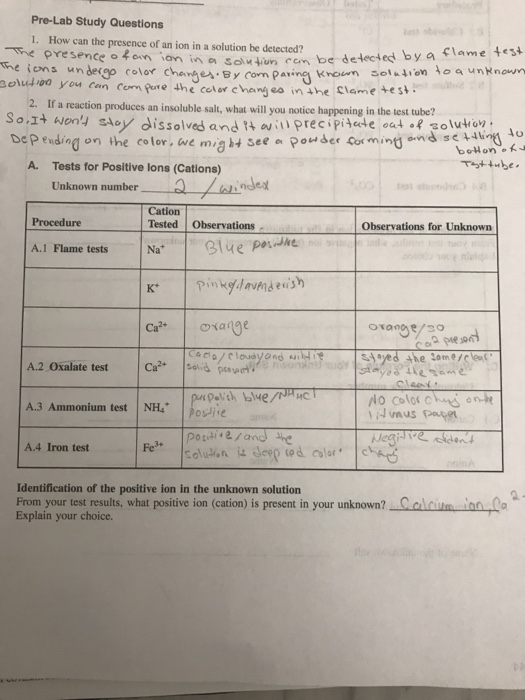 Pre-Lab Study Questions
1. How can the presence of an ion in a solution be detected?
The presence of an ion in a solution can be detected by a flame test
The ions undergo color changes. By comparing known solution to a unknown
solution you can compare the color changes in the flame test.
2. If a reaction produces an insoluble salt, what will you notice happening in the test tube?
So, It won't stay dissolved and it will precipitate out of solution.
Depending on the color, we might see a powder forming and settling to
bottom of
Test tube.
A. Tests for Positive Ions (Cations)
Unknown number 2 / windex
Procedure Cation Tested Observations Observations for Unknown
A.1 Flame tests Na+ Blue positive
K+ pinkey/lavenderish
Ca2+ orange orange/so
ca2 present
A.2 Oxalate test Ca2+ cloudy and stayed the same/clear
solid stayed the same
clear
A.3 Ammonium test NH4+ purpolish blue/ No color on
litmus paper
A.4 Iron test Fe3+ and the Negitive didn't
solution is deep red color.
Identification of the positive ion in the unknown solution
From your test results, what positive ion (cation) is present in your unknown? Calcium ion, Ca 2
Explain your choice.